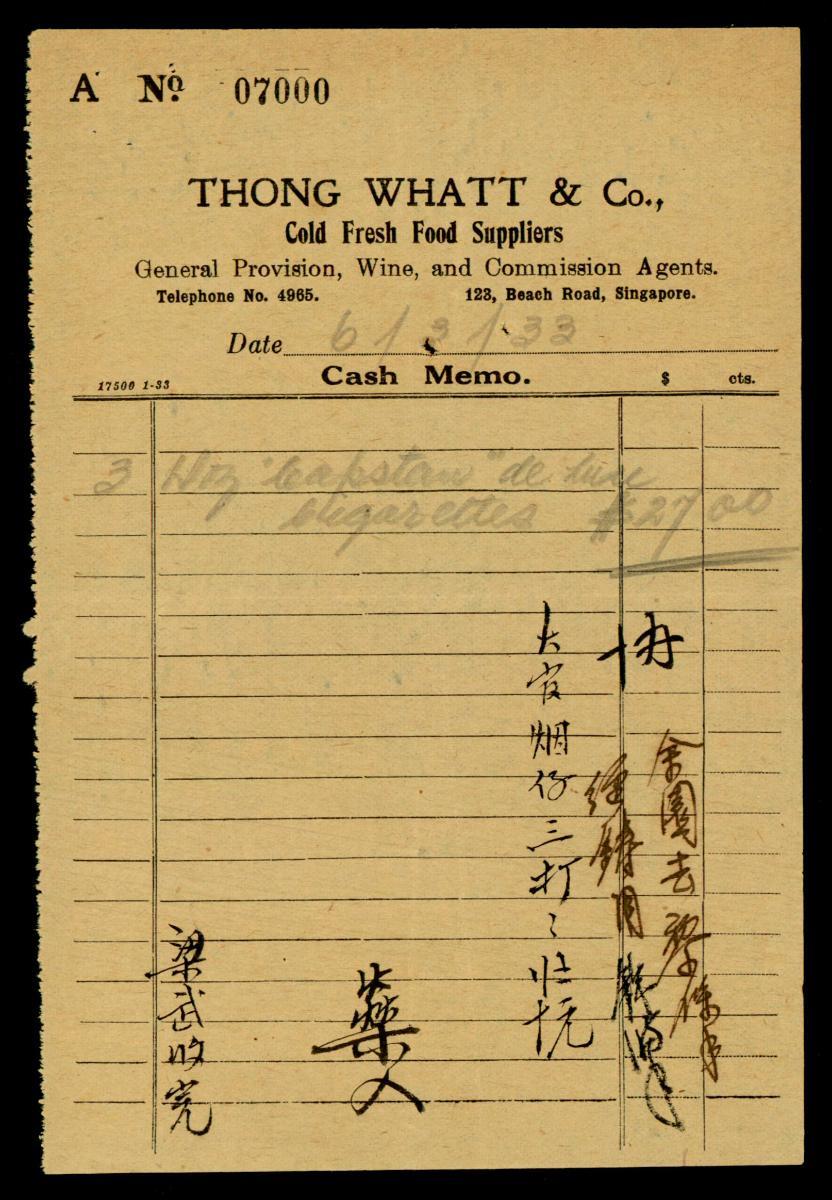 A Nº 07000
THONG WHATT & Co.,
Cold Fresh Food Suppliers
General Provision, Wine, and Commission Agents.
Telephone No. 4965. 123, Beach Road, Singapore.
Date 6/3/33
17500 1-33 Cash Memo. $ cts.
3 Doz "Capstan" de luxe
Cigarettes $27/00
大官烟仔三打
梁武收完